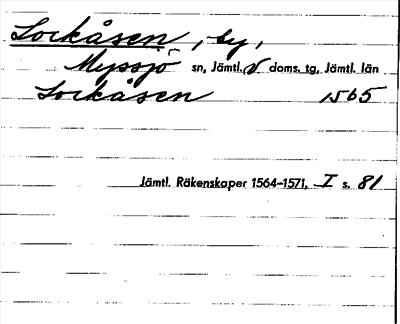 Lockåsen, by,
Myssjö sn, Jämtl. V doms. tg, Jämtl. län
Lockåsen 1565
Jämtl. Räkenskaper 1564–1571, I s. 81